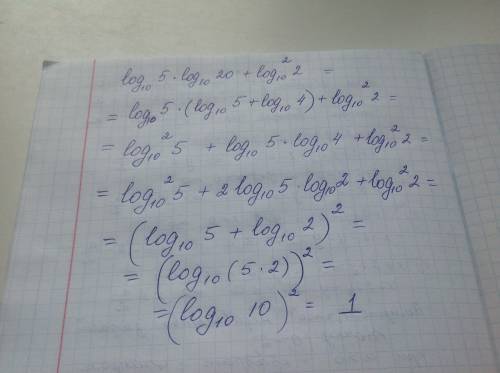 log₁₀ 5 · log₁₀ 20 + log₁₀² 2 =
= log₁₀ 5 · (log₁₀ 5 + log₁₀ 4) + log₁₀² 2 =
= log₁₀² 5 + log₁₀ 5 · log₁₀ 4 + log₁₀² 2 =
= log₁₀² 5 + 2 log₁₀ 5 · log₁₀ 2 + log₁₀² 2 =
= (log₁₀ 5 + log₁₀ 2)² =
= (log₁₀ (5 · 2))² =
= (log₁₀ 10)² = 1